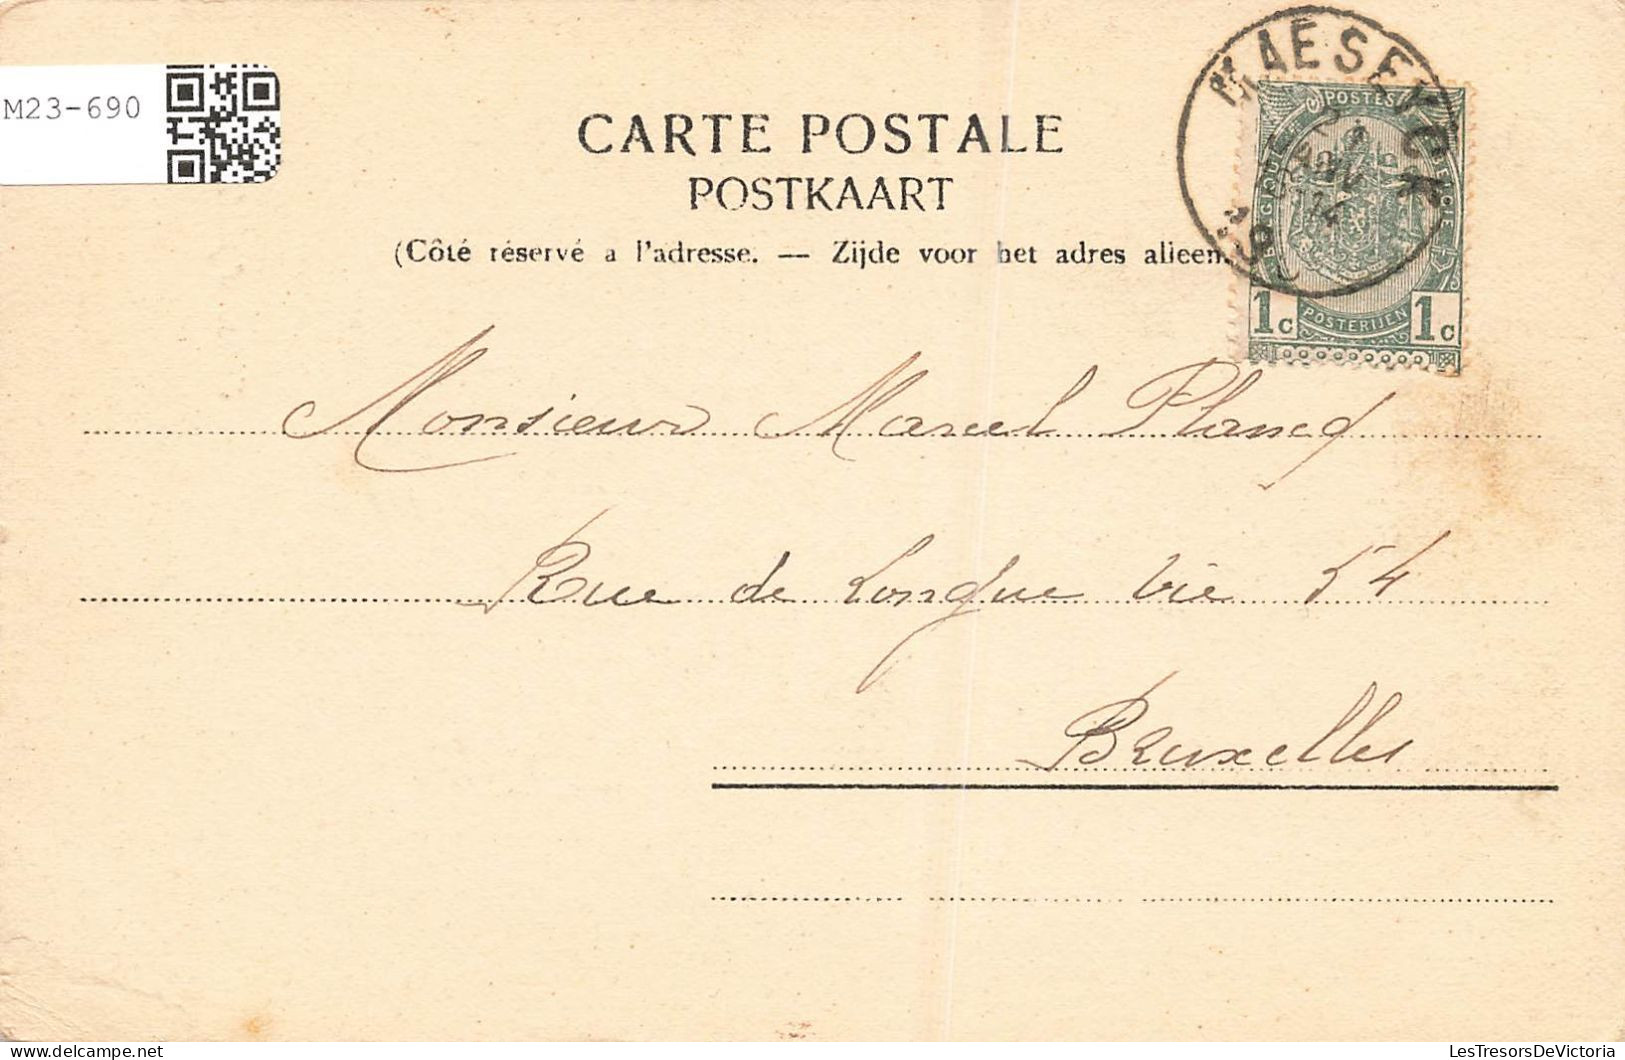 M23-690
CARTE POSTALE
POSTKAART
(Côté réservé a l'adresse. — Zijde voor het adres alleen.
MAESEYCK
21
JANV
14
POSTES
BELGIQUE
BELGIË
1c POSTERIJEN 1c
Monsieur Marcel Plancq
Rue de Longue Vie 54
Bruxelles
LesTresorsDeVictoria